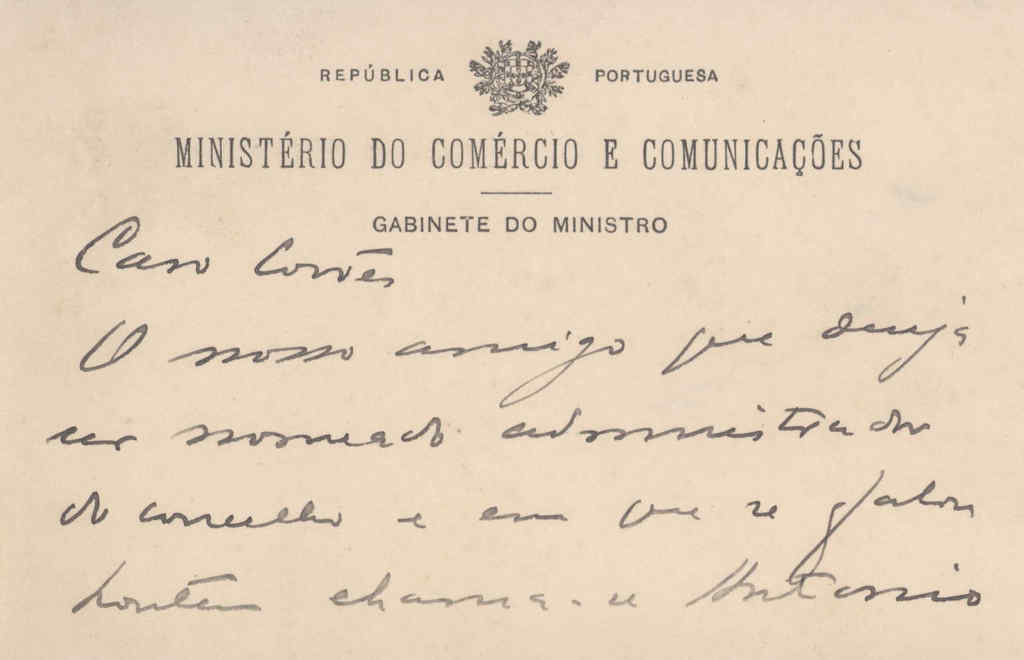 REPÚBLICA PORTUGUESA
MINISTÉRIO DO COMÉRCIO E COMUNICAÇÕES
GABINETE DO MINISTRO
Caro Cortês
O nosso amigo que deseja
ser nomeado administrador
do concelho e em que se falou
hontem chama-se Antonio